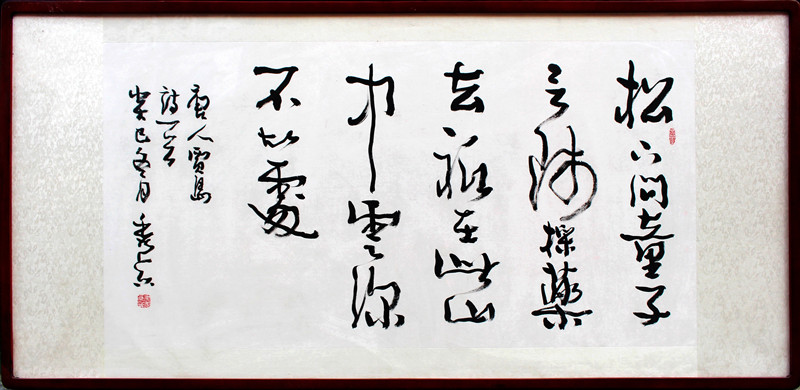 松下問童子
言師採藥
去祇在此山
中雲深
不知處
唐人賈島
詩一首
癸巳冬月